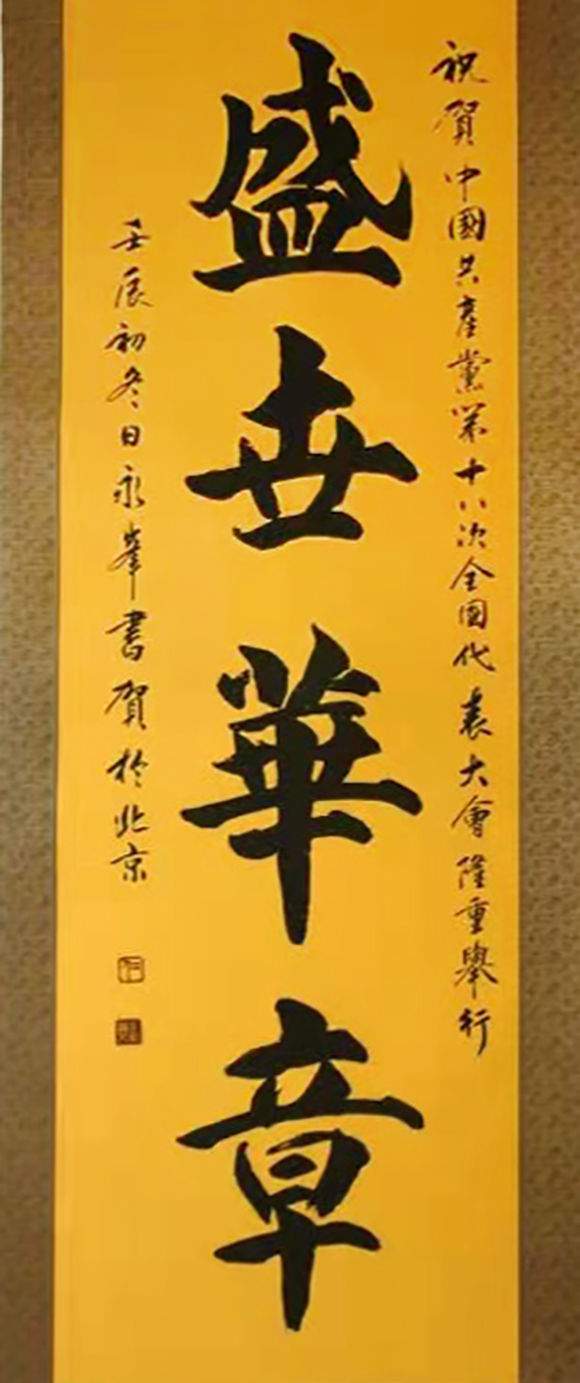 祝賀中國共產黨第十八次全国代表大會隆重舉行
盛世華章
壬辰初冬日永峯書賀於北京